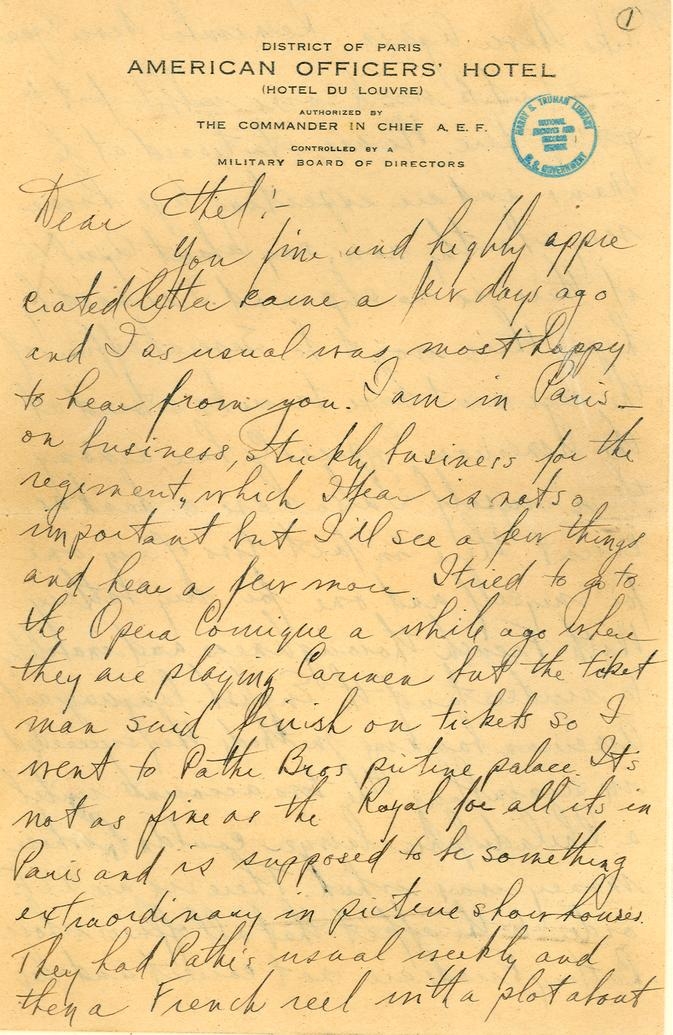 1
DISTRICT OF PARIS
AMERICAN OFFICERS' HOTEL
(HOTEL DU LOUVRE)
AUTHORIZED BY
THE COMMANDER IN CHIEF A. E. F.
CONTROLLED BY A
MILITARY BOARD OF DIRECTORS
HARRY S. TRUMAN LIBRARY
NATIONAL
ARCHIVES AND
RECORDS
SERVICE
U. S. GOVERNMENT
Dear Ethel:-
You fine and highly appre
ciated letter came a few days ago
and I as usual was most happy
to hear from you. I am in Paris -
on business, strickly business for the
regiment, which I fear is not so
important but I'll see a few things
and hear a few more. I tried to go to
the Opera Comique a while ago where
they are playing Carmen but the ticket
man said finish on tickets so I
went to Pathe Bros picture palace. It's
not as fine as the Royal for all its in
Paris and is supposed to be something
extraordinary in picture show houses.
They had Pathe's usual weekly and
then a French reel with a plot about